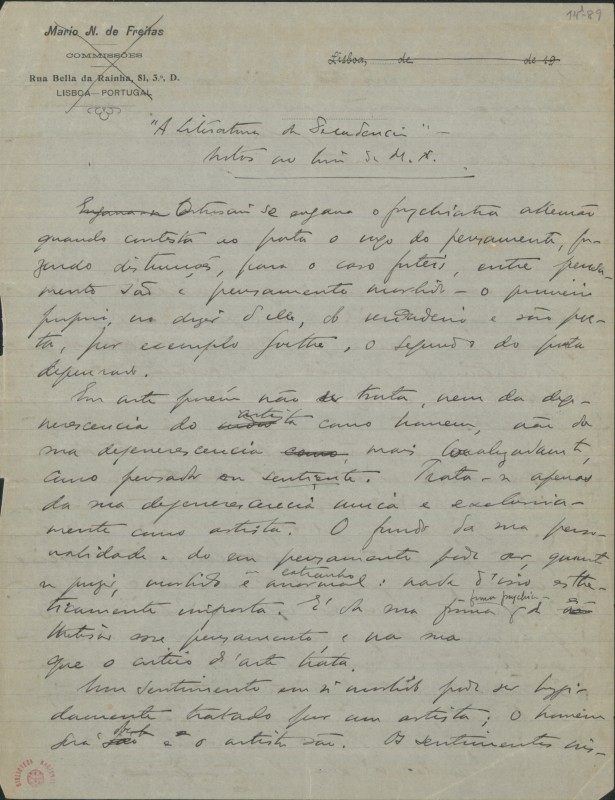 14³-89
Mario N. de Freitas
COMMISSÕES
Rua Bella da Rainha, 81, 3.º, D.
LISBOA - PORTUGAL
Lisboa, de de 19
"A Literatura da Decadencia" –
Notas ao livro de M. N.
se engana o psychiatra allemão
quando contesta ao poeta o uso do pensamento, fa-
zendo distincções, para o caso futeis, entre pensa-
mento são e pensamento morbido – o primeiro
proprio, no dizer d'elle, do verdadeiro e são poe-
ta, por exemplo Goethe, o segundo do poeta
degenerado.
Em arte porém não se trata, nem da dege-
nerescencia do artista como homem, não da
sua degenerescencia como, mais
como pensador ou sentiente. Trata-se apenas
da sua degenerescencia unica e exclusiva-
mente como artista. O fundo da sua perso-
nalidade e do seu pensamento pode ser, quanto
se quizer, morbido e estranho anormal: nada d'isso esthe-
ticamente importa. É da sua forma, forma psychica de
esse pensamento, e na sua
que o critério d'arte trata.
Um sentimento em si morbido pode ser hygie-
damente tratado por um artista; o homem
será e o artista são. Os sentimentos